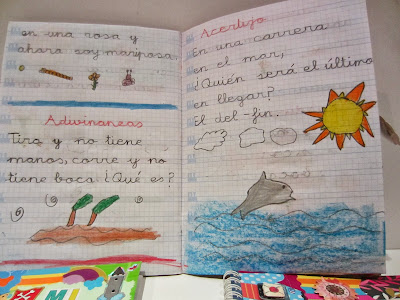 en una rosa y
ahora soy mariposa.
Adivinanzas
Tira y no tiene
manos, corre y no
tiene boca ¿Qué es?
Acertijo
En una carrera
en el mar,
¿Quién será el último
en llegar?
El del-fin.
MI